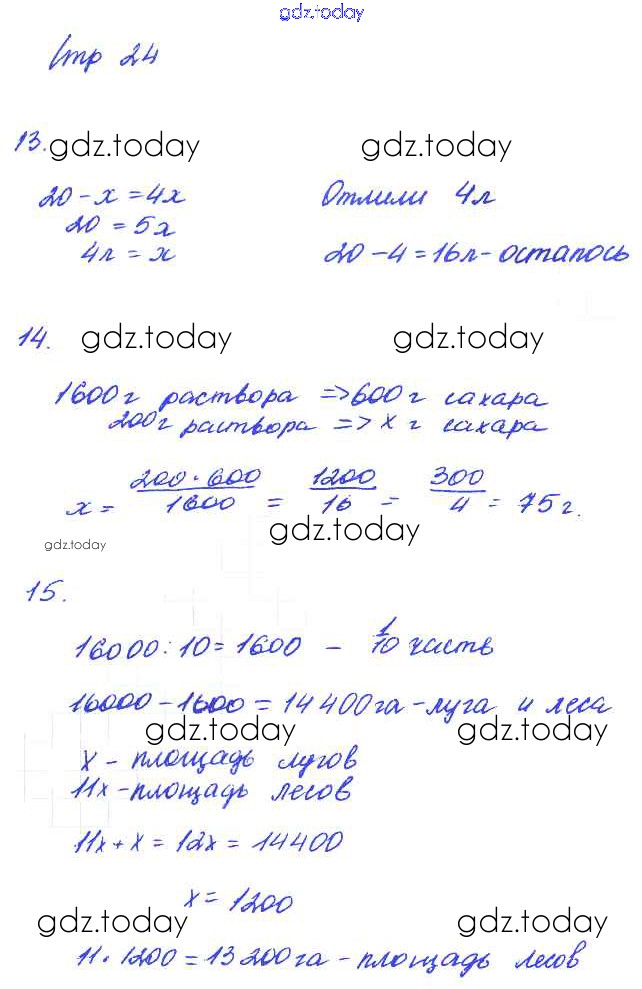 gdz.today
Стр 24
13. gdz.today gdz.today
20 - x = 4x Отлили 4л
20 = 5x
4л = x 20 - 4 = 16л - осталось
14. gdz.today gdz.today
1600г раствора => 600г сахара
200г раствора => x г сахара
x = 200·600/1600 = 1200/16 = 300/4 = 75г.
gdz.today gdz.today
15.
16000:10 = 1600 - 1/10 часть
16000 - 1600 = 14400га - луга и леса
gdz.today gdz.today
x - площадь лугов
11x - площадь лесов
11x + x = 12x = 14400
x = 1200
gdz.today gdz.today
11·1200 = 13200га - площадь лесов